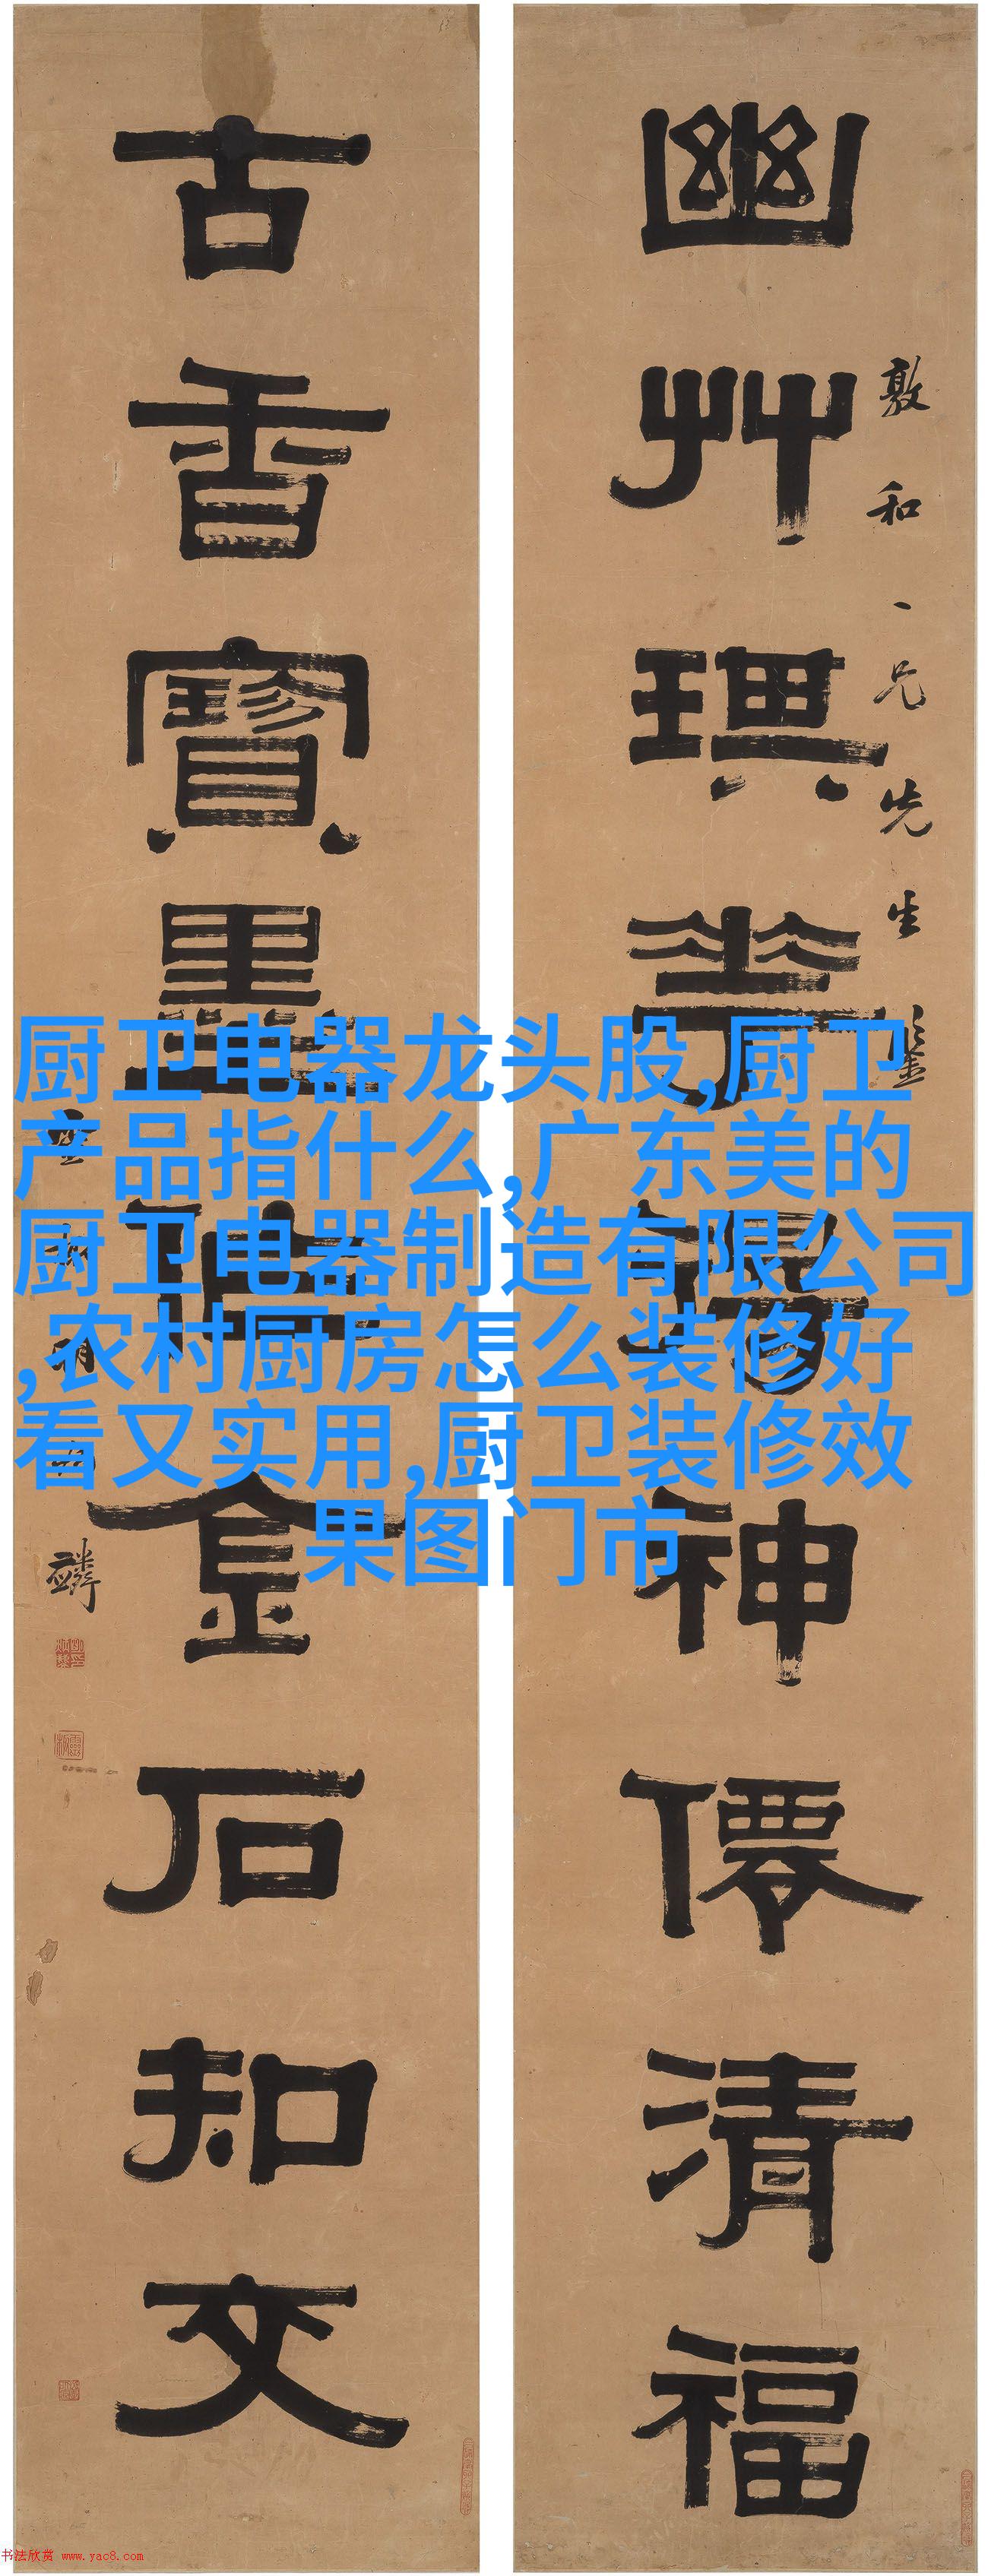 幽艸琪花得神僊清福
敦和一兄先生鑒
古香寶墨祉金石知文
厨卫电器龙头股,厨卫
产品指什么,广东美的
厨卫电器制造有限公司
,农村厨房怎么装修好
看又实用,厨卫装修效
果图门市
书法欣赏 www.yac8.com